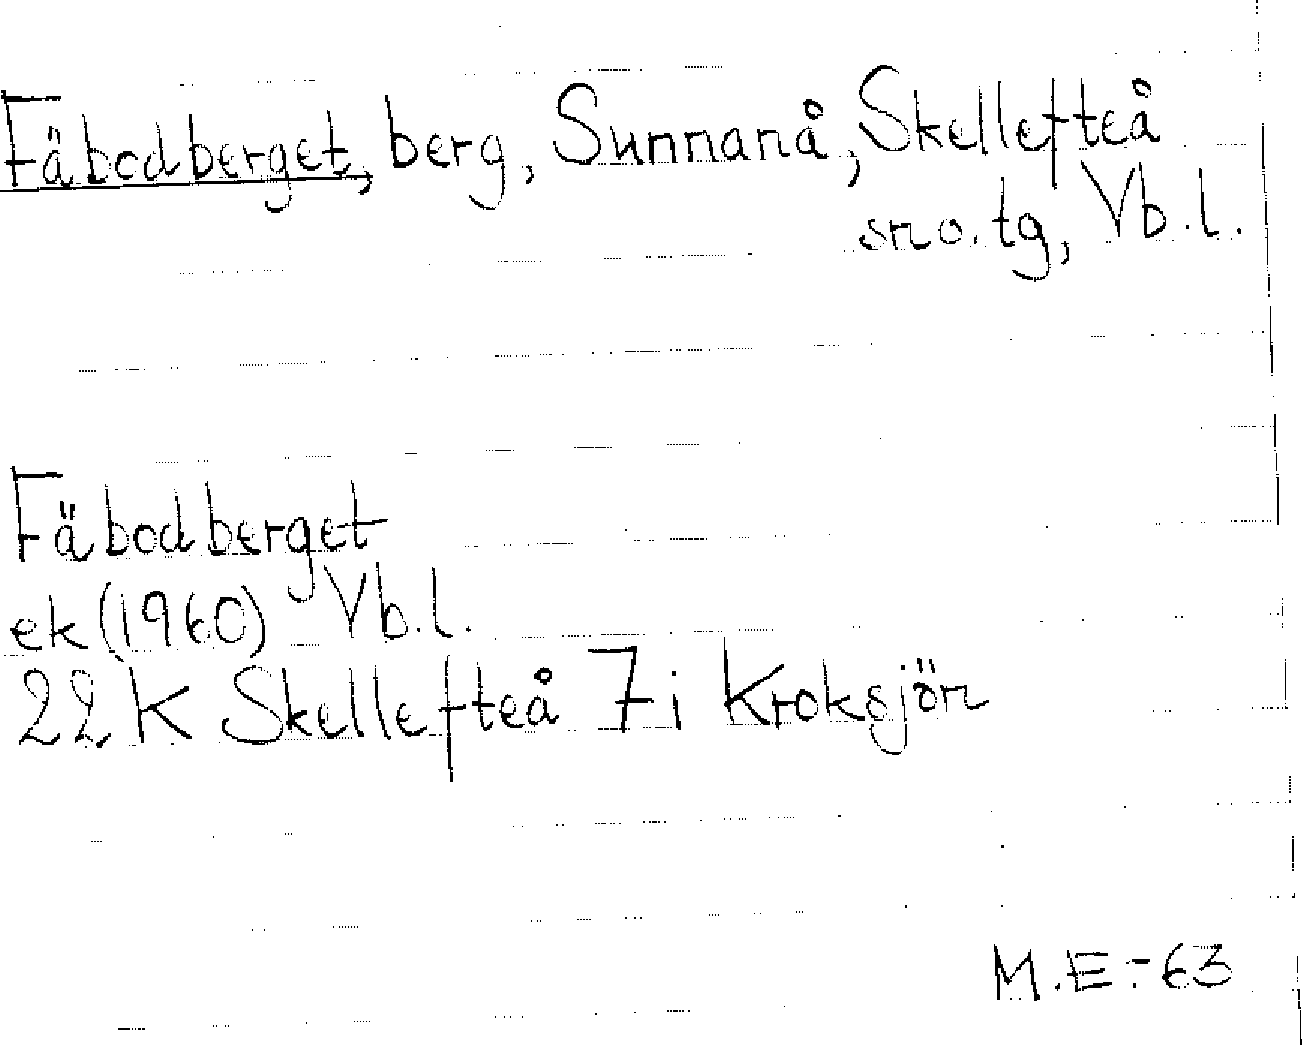 Fäbodberget, berg, Sunnanå, Skellefteå
sn o. tg, Vb.l.
Fäbodberget
ek (1960) Vb.l.
22 K Skellefteå 7 i Kroksjön
M.E.-63